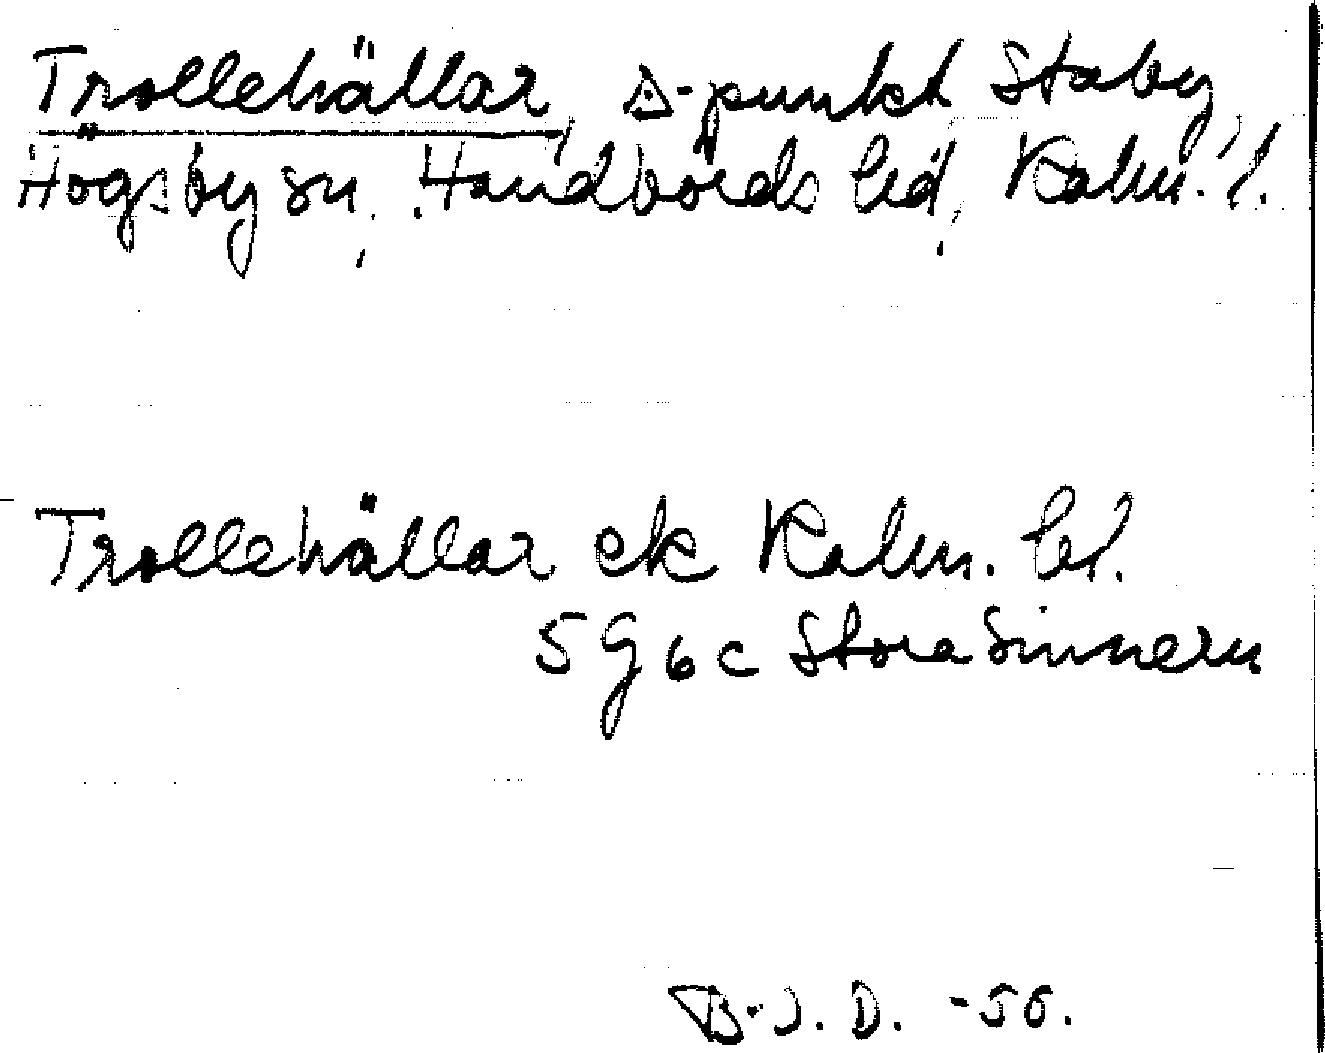 Trollehällar, △-punkt Staby,
Högsby sn, Handbörds hd, Kalm. l.
Trollehällar ek Kalm. bl.
5 G 6 c Stora Sinnern
B.J.D. -56.